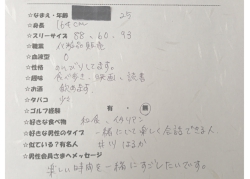 ☆なまえ・年齢 25
☆身長 164cm
☆スリーサイズ 88-60-93
☆職業 化粧品販売
☆血液型 O
☆性格 さっぱりしてます。
☆趣味 食べ歩き、映画、読書
☆お酒 飲めます
☆タバコ 少々
☆ゴルフ経験 有・無
☆好きな食べ物 和食、イタリアン
☆好きな男性のタイプ 一緒にいて楽しく会話できる人
☆似ている?有名人 井川はるか
☆男性会員さまへメッセージ
楽しい時間を一緒にすごしたいです。